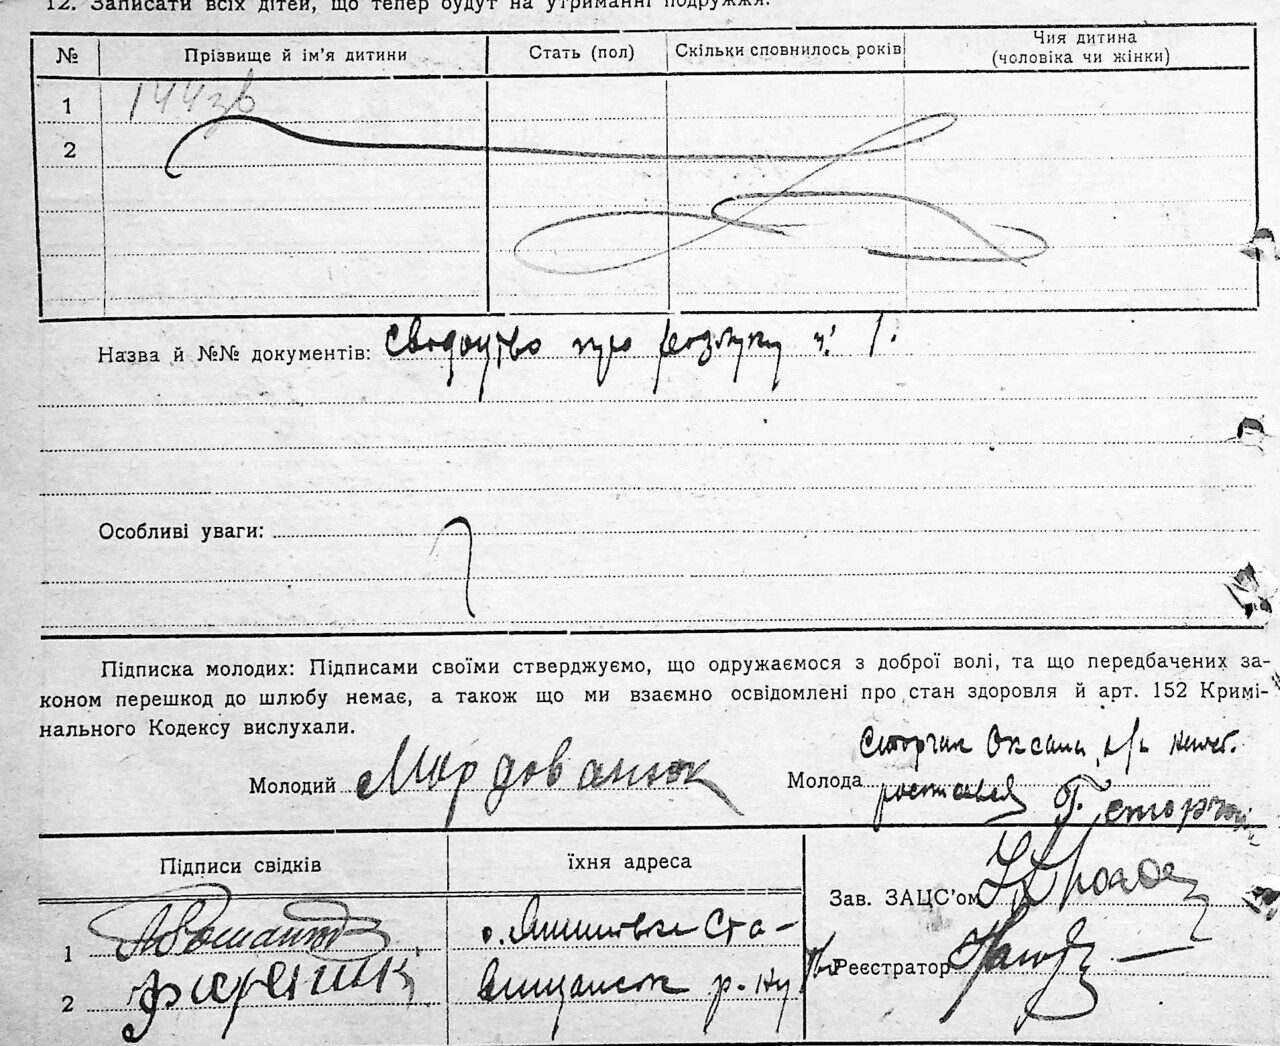 12. Записати всіх дітей, що тепер будут на утриманні подружжя.
№ Прізвище й ім'я дитини Стать (пол) Скільки сповнилось років Чия дитина
(чоловіка чи жінки)
1
2
Назва й №№ документів: Свідоцтво про розлуку ч. 1.
Особливі уваги:
Підписка молодих: Підписами своїми стверджуємо, що одружаємося з доброї волі, та що передбачених за-
коном перешкод до шлюбу немає, а також що ми взаємно освідомлені про стан здоровля й арт. 152 Кримі-
нального Кодексу вислухали.
Сторчак Оксана
Молодий Мордованюк Молода
Підписи свідків їхня адреса
Зав. ЗАЦС'ом
1 с. Ста-
Реєстратор
2 р.